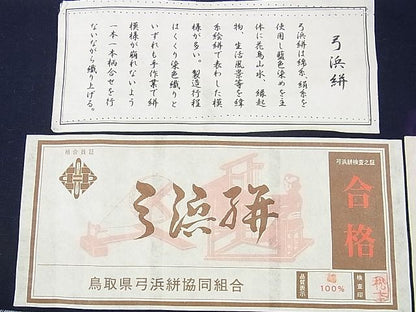 弓浜絣
弓浜絣は綿糸、絹糸を
使用し藍色染めを主
体に花鳥山水、縁起
物、生活風景等を緯
糸絵絣で表わした模
様が多い。製造行程
はくくり染色織りと
いずれも手作業で絣
模様が崩れないよう
一本一本柄合せを行
ないながら織り上げる。
組合員証
弓浜絣
鳥取県弓浜絣協同組合
弓浜絣検査之証
合格
品質表示
100%
検査印